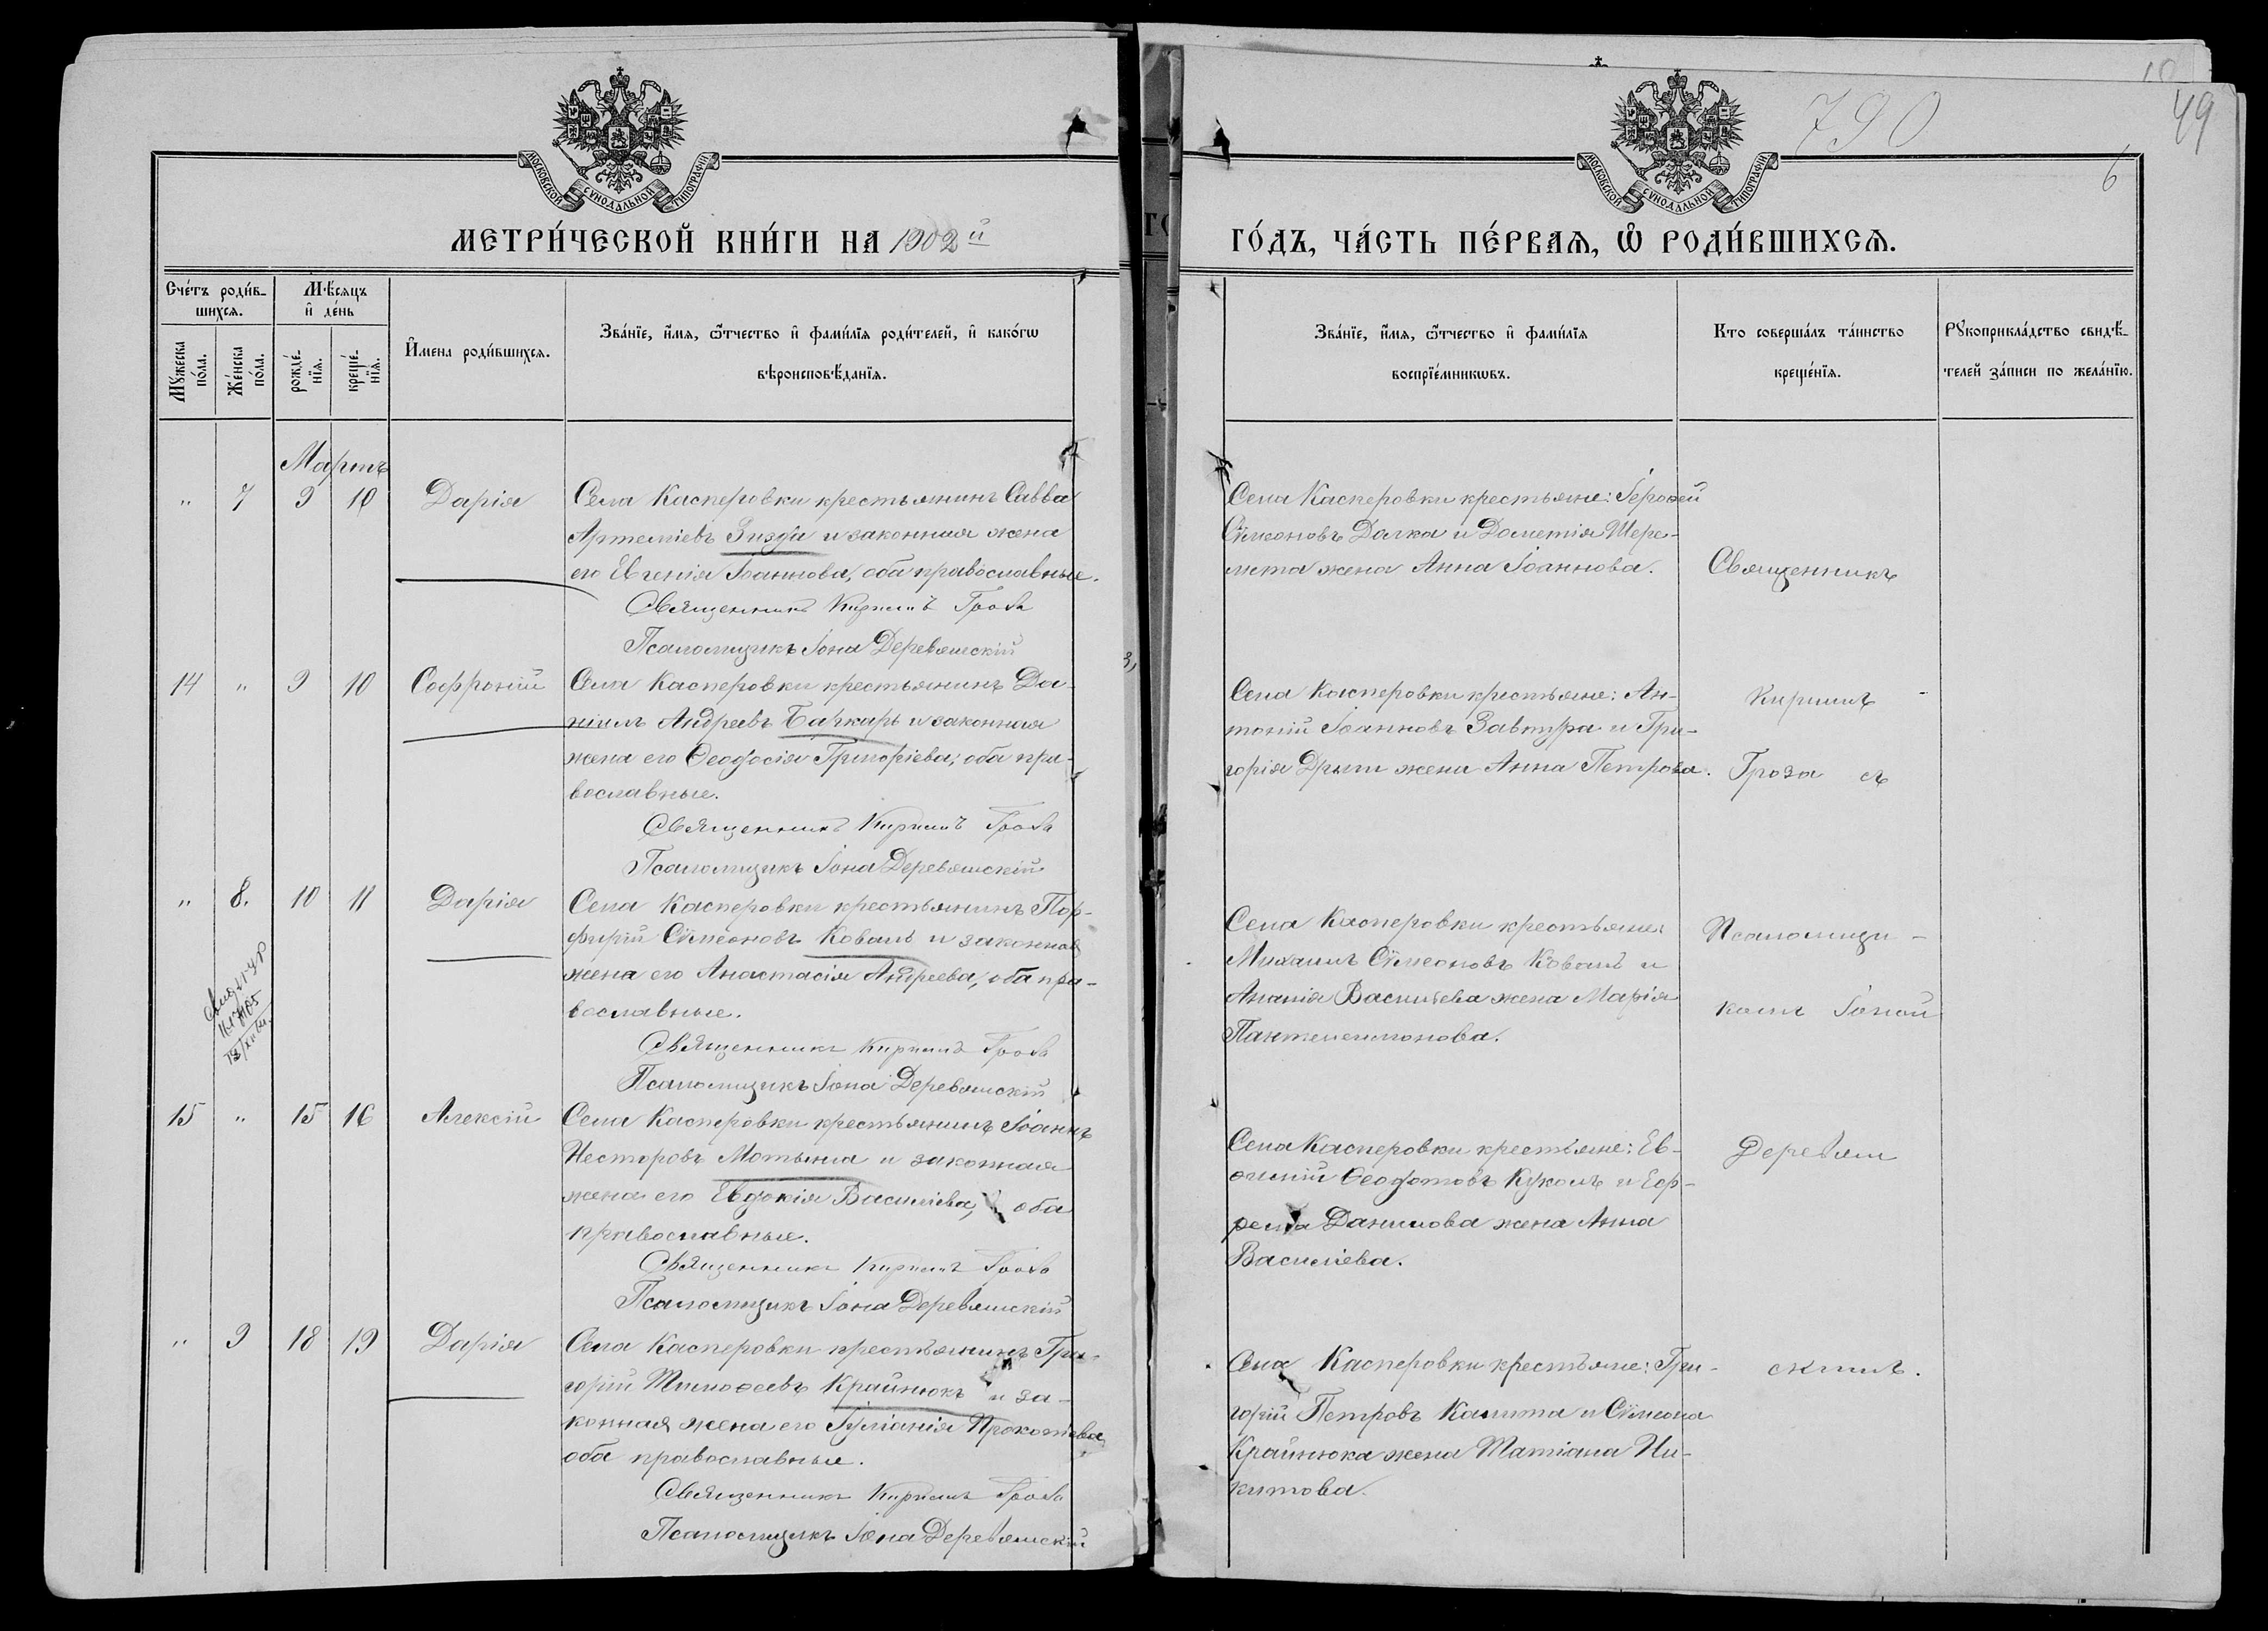 790
49
6
МОСКОВСКОЙ СУНОДАЛЬНОЙ ТИПОГРАФІИ
МОСКОВСКОЙ СУНОДАЛЬНОЙ ТИПОГРАФІИ
МЕТРИ́ЧЕСКОЙ КНИ́ГИ НА 1902й
ГО́ДЪ, ЧА́СТЬ ПЕ́РВАЯ, Ѽ РОДИ́ВШИХСЯ.
Сче́тъ роди́в-
шихся.
Мѣ́сяцъ
и҆ де́нь
Мꙋ́жеска по́ла.
Же́нска по́ла.
рожде́-
нїя.
креще́-
нїя.
И҆мена роди́вшихся.
Зва́нїе, и҆́мя, ѻ҆́тчество и҆ фами́лїя роди́телей, и҆ како́гѡ
вѣроисповѣ́данїя.
Зва́нїе, и҆́мя, ѻ҆́тчество и҆ фами́лїя
воспрїе́мникѡвъ.
Кто соверша́лъ та́инство
креще́нїя.
Рꙋкоприкла́дство свидѣ́-
телей за́писи по жела́нїю.
Мартъ
" 7 9 10 Дарія
Села Касперовки крестьянинъ Савва
Артеміевъ Зизда и законная жена
его Евгенія Іоаннова, оба православные.
Священникъ Кириллъ Гроза
Псаломщикъ Іона Деревянскій
Села Касперовки крестьяне: Іероѳей
Сѵмеоновъ Далка и Дометія Шере-
мета жена Анна Іоаннова.
Священникъ
14 " 9 10 Софроній
Села Касперовки крестьянинъ Да-
ніилъ Андреевъ Баркарь и законная
жена его Ѳеодосія Григоріева, оба пра-
вославные.
Священникъ Кириллъ Гроза
Псаломщикъ Іона Деревянскій
Села Касперовки крестьяне: Ан-
тоній Іоанновъ Завтура и Гри-
горія Дрыги жена Анна Петрова.
Кириллъ
Гроза съ
" 8. 10 11 Дарія
Села Касперовки крестьянинъ Пор-
фирій Сѵмеоновъ Коваль и законная
жена его Анастасія Андреева, оба пра-
вославные.
Священникъ Кириллъ Гроза
Псаломщикъ Іона Деревянскій
Села Касперовки крестьяне:
Михаилъ Сѵмеоновъ Коваль и
Ананія Васильева жена Марія
Пантелеимонова.
Псаломщи-
комъ Іоной
15 " 15 16 Алексій
Села Касперовки крестьянинъ Іоаннъ
Несторовъ Мотына и законная
жена его Евдокія Василіева, оба
православные.
Священникъ Кириллъ Гроза
Псаломщикъ Іона Деревянскій
Села Касперовки крестьяне: Ев-
ѳимій Ѳеодотовъ Куколъ и Еф-
рема Данилова жена Анна
Василіева.
Деревян
" 9 18 19 Дарія
Села Касперовки крестьянинъ Гри-
горій Тимоѳеевъ Крайнюкъ и за-
конная жена его Іуліанія Прокопіева,
оба православные.
Священникъ Кириллъ Гроза
Псаломщикъ Іона Деревянскій
Села Касперовки крестьяне: Гри-
горій Петровъ Калита и Сѵмеона
Крайнюка жена Татіана Ни-
китова.
скимъ.